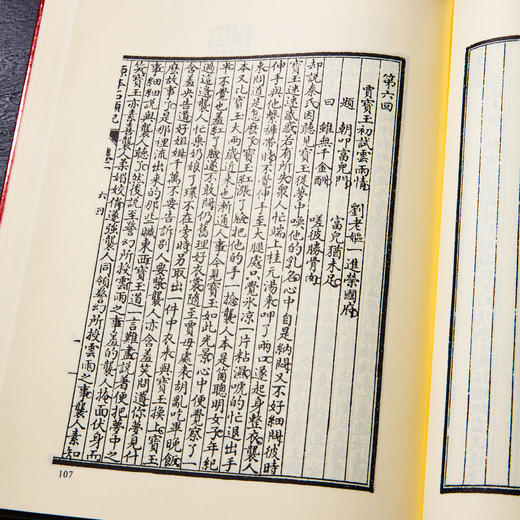 第六回
賈寶玉初試雲雨情　劉老嫗一進榮國府
題　朝叩富兒門　富兒猶未足
曰　雖無千金酬　嗟彼勝骨肉
却說秦氏因聽見寶玉從夢中喚他的乳名心中自是納悶又不好細問彼時
寶玉迷迷惑惑若有所失衆人忙端上桂元湯來呷了兩口遂起身整衣襲人
伸手與他繫褲帶時不覺伸手至大腿處只覺氷凉一片粘濕唬的忙退出手
來問道是怎麽了寶玉紅漲了臉把他的手一捻襲人本是個聰明女子年紀
本又比寶玉大兩歲近來也漸通人事今見寶玉如此光景心中便覺察了一半
不覺也羞紅了臉遂不敢問仍舊理好衣裳隨至賈母處來胡亂吃畢晚飯
過這邊襲人忙乘奶娘丫環不在旁時另取出一件中衣來與寶玉換上寶玉
含羞央告道好姐姐千萬不要告訴別人要緊襲人亦含羞笑問道你夢見什
麽故事了是那裡流出來的那些臟東西寶玉道一言難盡說着便把夢中之
事細細說與襲人聽了然後說至警幻所授雲雨之事羞的襲人掩面伏身而
笑寶玉亦素喜襲人柔媚姣俏遂強襲人同領警幻所授雲雨之事襲人素知
石頭記
卷一
六回
一
107